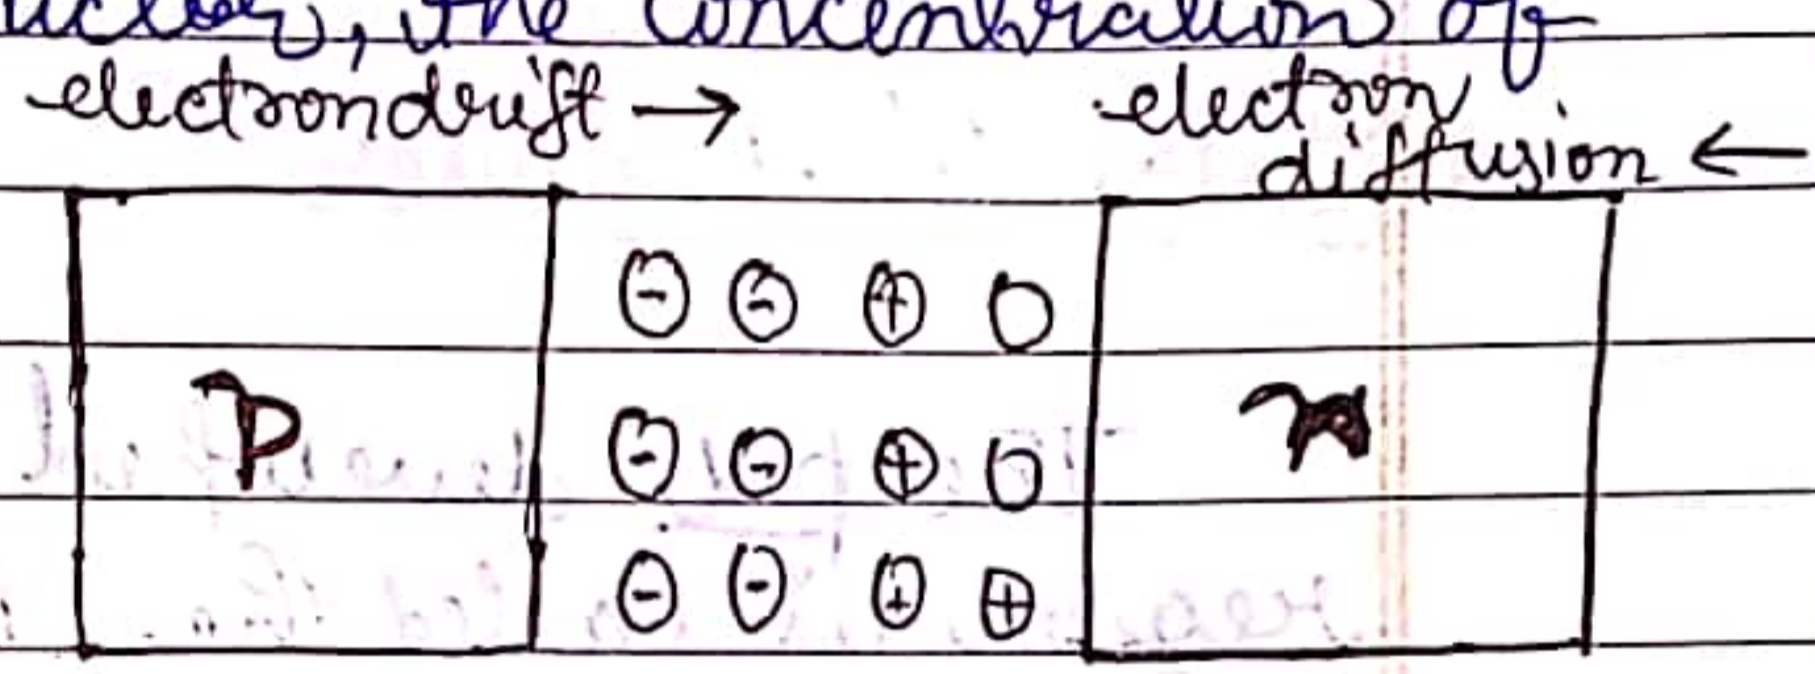 the concentration of
electron drift →
electron
diffusion ←
⊖ ⊖ ⊕ ○
p ⊖ ⊖ ⊕ ○ n
⊖ ⊖ ⊕ ⊕